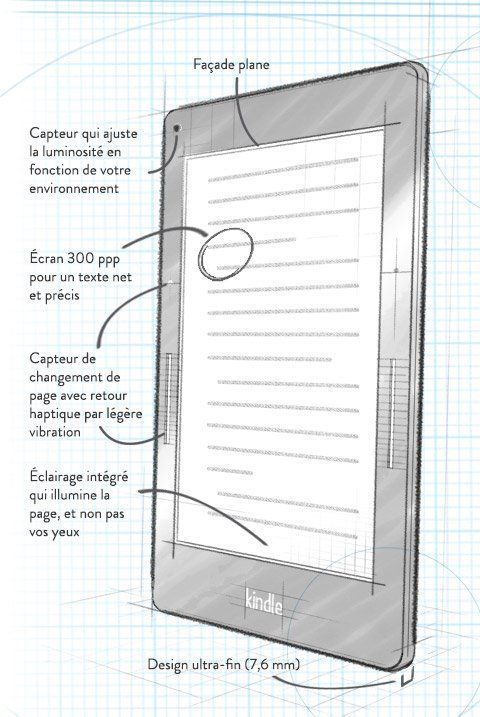 Façade plane
Capteur qui ajuste
la luminosité en
fonction de votre
environnement
Écran 300 ppp
pour un texte net
et précis
Capteur de
changement de
page avec retour
haptique par légère
vibration
Éclairage intégré
qui illumine la
page, et non pas
vos yeux
kindle
Design ultra-fin (7,6 mm)